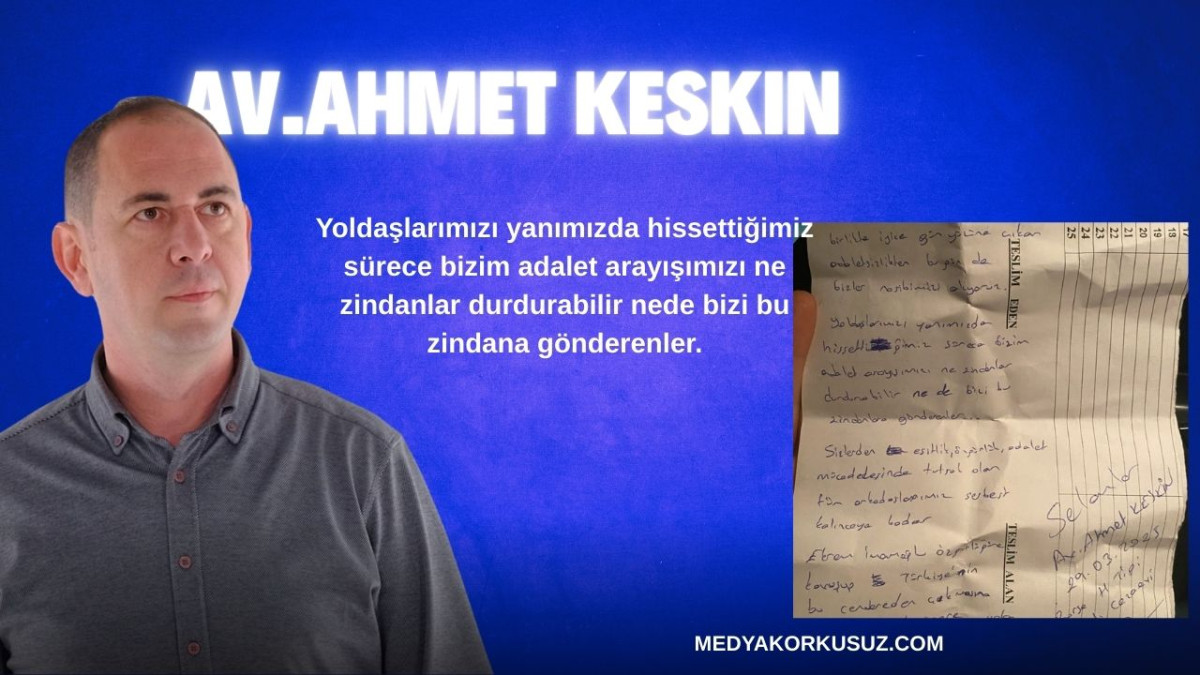 AV.AHMET KESKIN
Yoldaşlarımızı yanımızda hissettiğimiz
sürece bizim adalet arayışımızı ne
zindanlar durdurabilir nede bizi bu
zindana gönderenler.
birlikte iyice gün yüzüne çıkan
adaletsizlikten bugün de
bizler nasibimizi alıyoruz.
Yoldaşlarımızı yanımızda
hissettiğimiz sürece bizim
adalet arayışımızı ne zindanlar
durdurabilir ne de bizi bu
zindanlara gönderenler...
Sizlerden eşitlik, özgürlük, adalet
mücadelesinde tutsak olan
tüm arkadaşlarımız serbest
kalıncaya kadar
Ekrem İmamoğlu özgürlüğüne
kavuşup Türkiye'nin
bu cendereden çıkmasına
TESLİM EDEN
TESLİM ALAN
25
24
23
22
21
20
19
18
Selamlar
Av. Ahmet KESKİN
29.03.2025
Bursa H Tipi
Cezaevi
MEDYAKORKUSUZ.COM